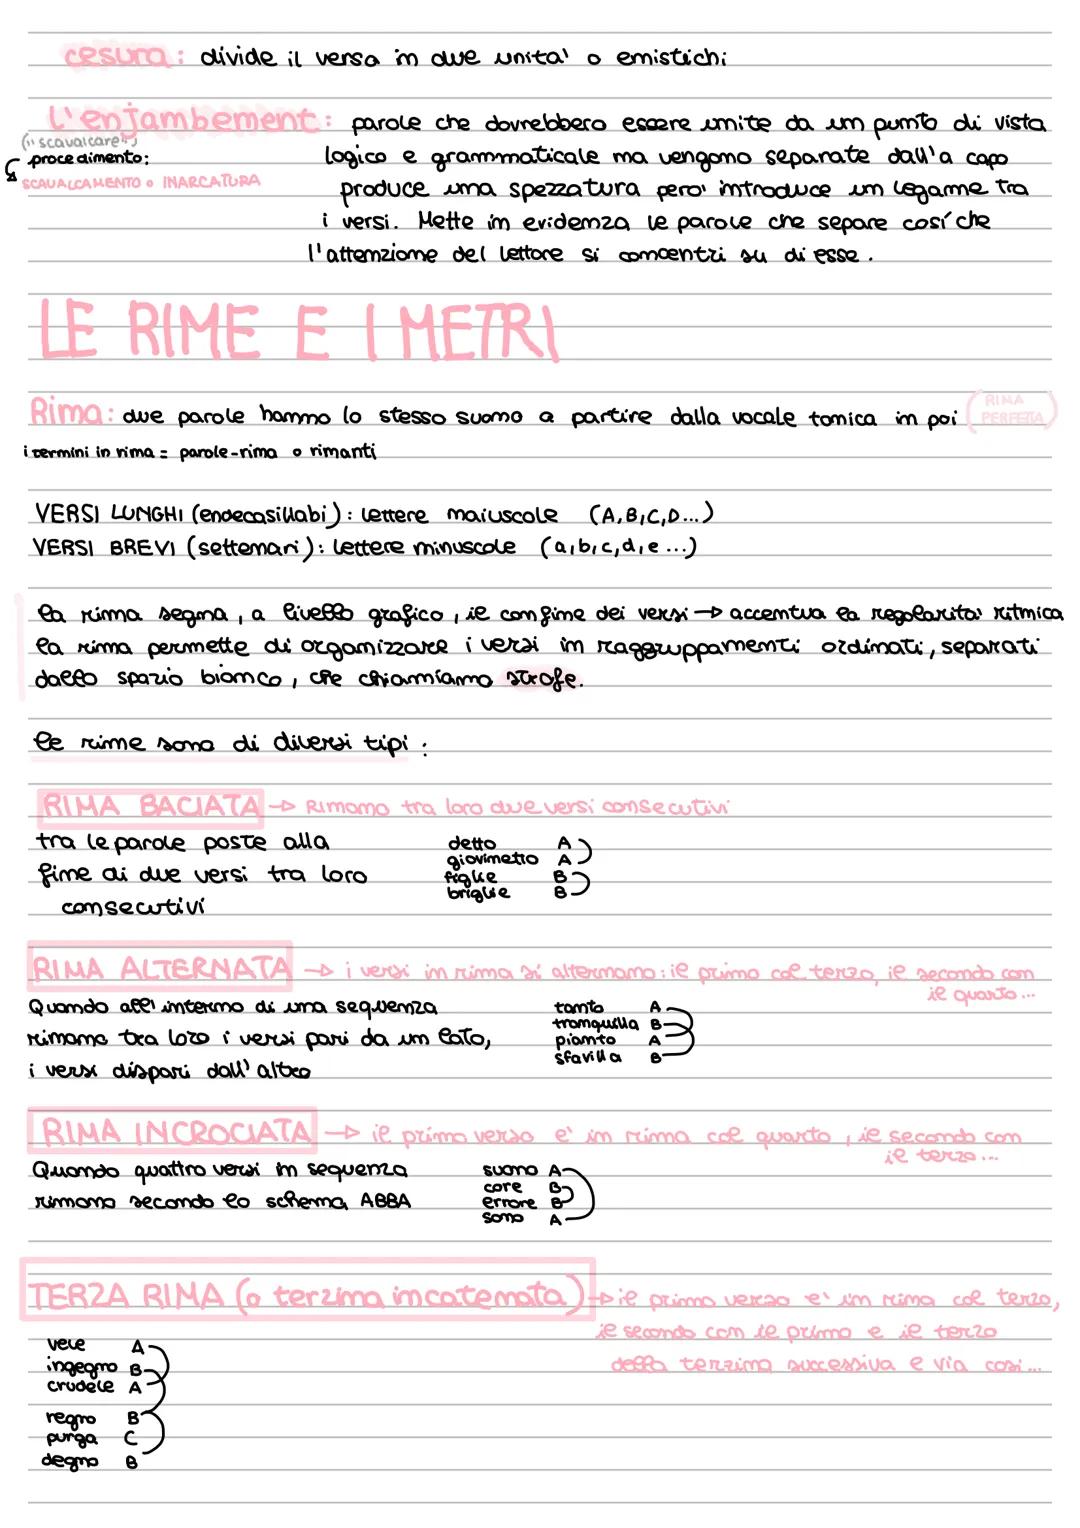 cesura: divide il verso in due unita' o emistichi
L'enjambement: parole che dovrebbero essere unite da un punto di vista
("scavalcare")
procedimento: logico e grammaticale ma vengono separate dall'a capo
SCAVALCAMENTO o INARCATURA produce una spezzatura pero' introduce un legame tra
i versi. Mette in evidenza le parole che separe cosí che
l'attenzione del lettore si concentri su di esse.
LE RIME E I METRI
Rima: due parole hanno lo stesso suono a partire dalla vocale tonica in poi (RIMA PERFETTA)
i termini in rima = parole-rima o rimanti
VERSI LUNGHI (endecasillabi): lettere maiuscole (A,B,C,D...)
VERSI BREVI (settenari): lettere minuscole (a,b,c,d,e...)
la rima segna, a livello grafico, il confine dei versi → accentua la regolarita' ritmica
la rima permette di organizzare i versi in raggruppamenti ordinati, separati
dallo spazio bianco, che chiamiamo strofe.
le rime sono di diversi tipi:
RIMA BACIATA → Rimano tra loro due versi consecutivi
tra le parole poste alla
fine di due versi tra loro
consecutivi
detto A
giovinetto A
figlie B
briglie B
RIMA ALTERNATA → i versi in rima si alternano: il primo col terzo, il secondo con
il quarto...
Quando all'interno di una sequenza
rimano tra loro i versi pari da un lato,
i versi dispari dall'altro
tanto A
tranquilla B
pianto A
sfavilla B
RIMA INCROCIATA → il primo verso e' in rima col quarto, il secondo con
il terzo...
Quando quattro versi in sequenza
rimano secondo lo schema ABBA
suono A
core B
errore B
sono A
TERZA RIMA (o terzina incatenata) → il primo verso e' in rima col terzo,
il secondo con il primo e il terzo
della terzina successiva e via cosi...
vele A
ingegno B
crudele A
regno B
purga C
degno B